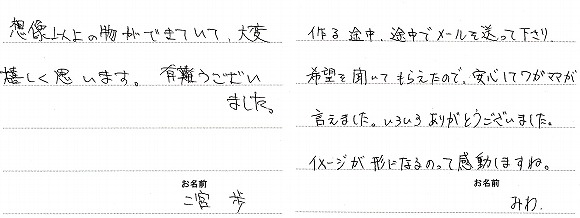 想像以上の物ができていて、大変
嬉しく思います。有難うござい
ました。
お名前
二宮 歩
作る途中、途中でメールを送って下さり
希望を聞いてもらえたので、安心してワガママが
言えました。いろいろありがとうございました。
イメージが形になるのって感動しますね。
お名前
みわ.